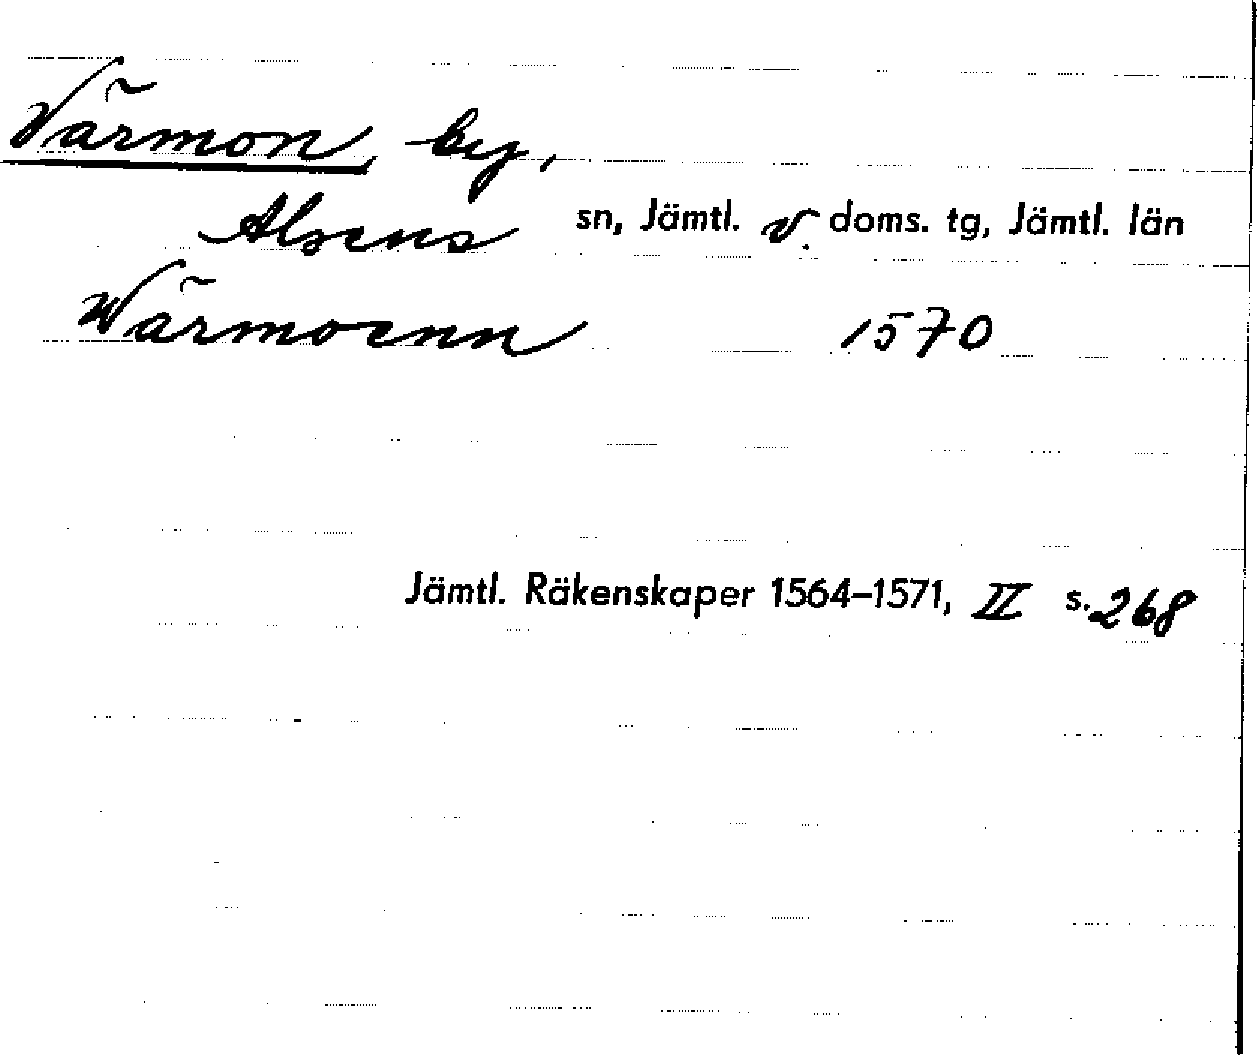 Värmon, by,
Alsens sn, Jämtl. v. doms. tg, Jämtl. län
Wärmoenn 1570
Jämtl. Räkenskaper 1564–1571, II s. 268